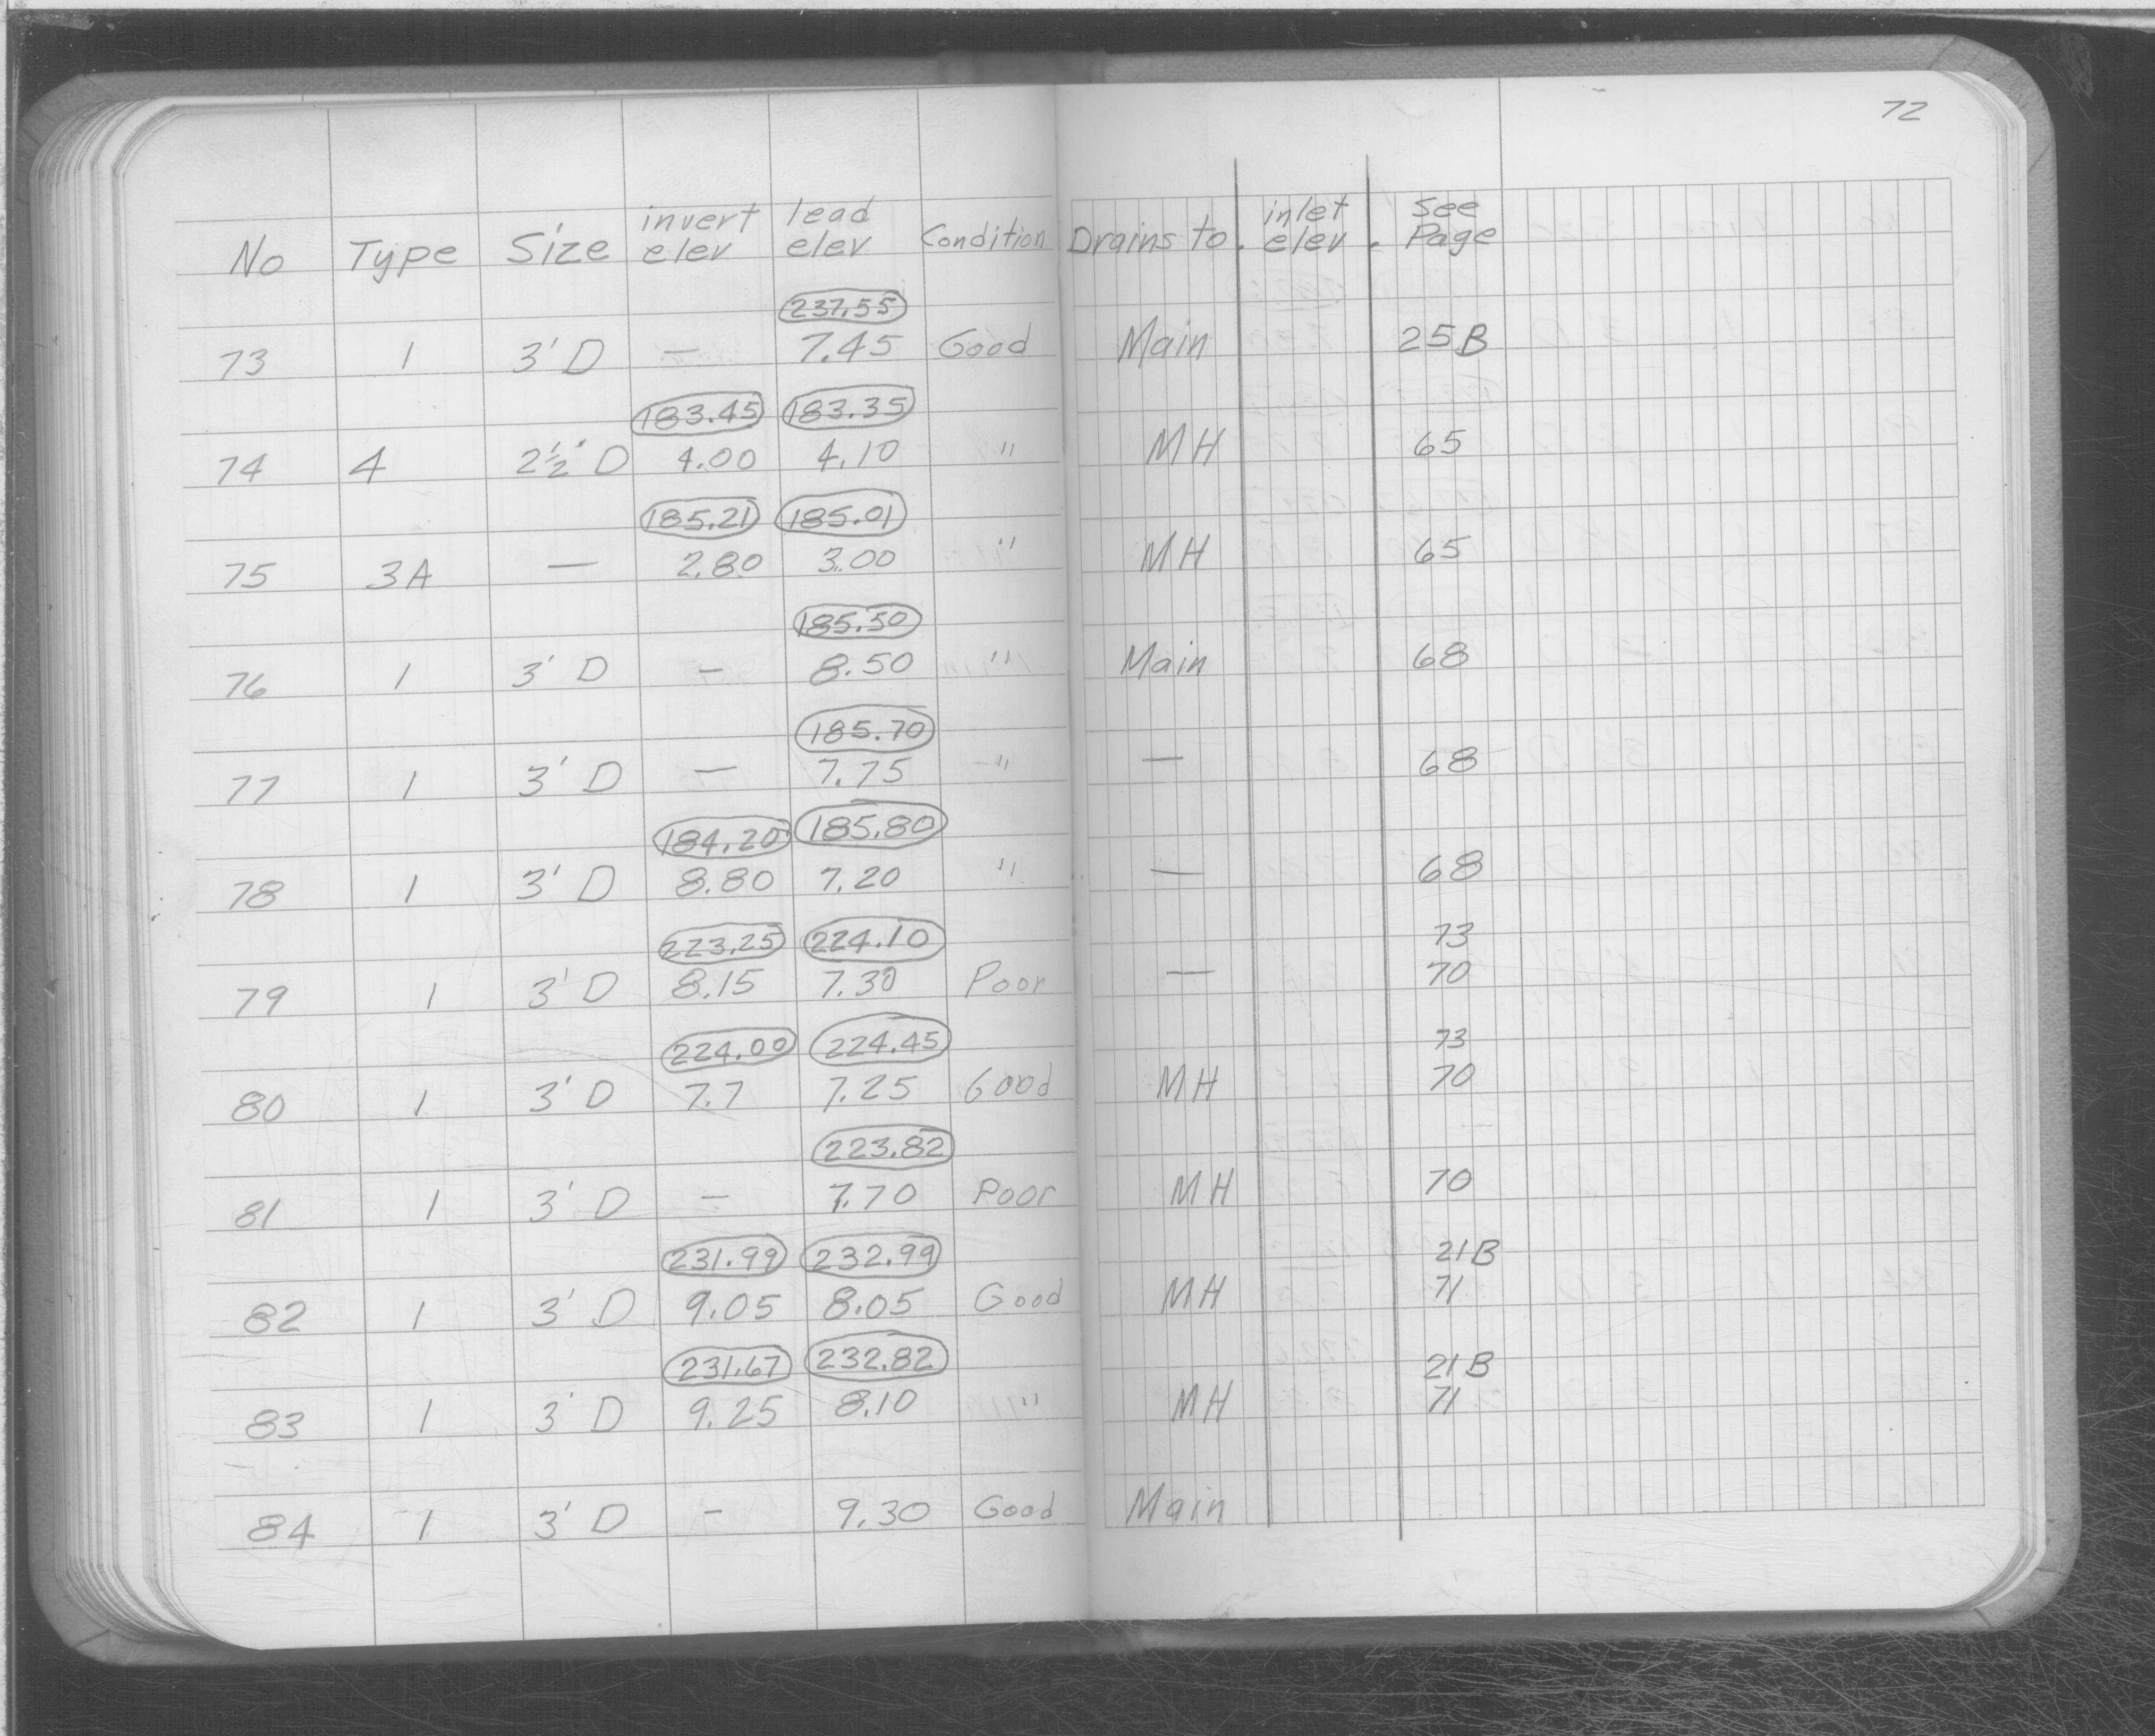 72
invert lead inlet See
No Type Size elev elev Condition Drains to. elev. Page
237.55
73 1 3' D — 7.45 Good Main 25B
183.45 183.35
74 4 2½' D 4.00 4.10 " MH 65
185.21 185.01
75 3A — 2.80 3.00 " MH 65
185.50
76 1 3' D - 8.50 " Main 68
185.70
77 1 3' D — 7.75 " — 68
184.20 185.80
78 1 3' D 8.80 7.20 " — 68
223.25 224.10 73
79 1 3' D 8.15 7.30 Poor — 70
224.00 224.45 73
80 1 3' D 7.7 7.25 Good MH 70
223.82
81 1 3' D - 7.70 Poor MH 70
231.99 232.99 21B
82 1 3' D 9.05 8.05 Good MH 71
231.67 232.82 21B
83 1 3' D 9.25 8.10 " MH 71
84 1 3' D - 9.30 Good Main